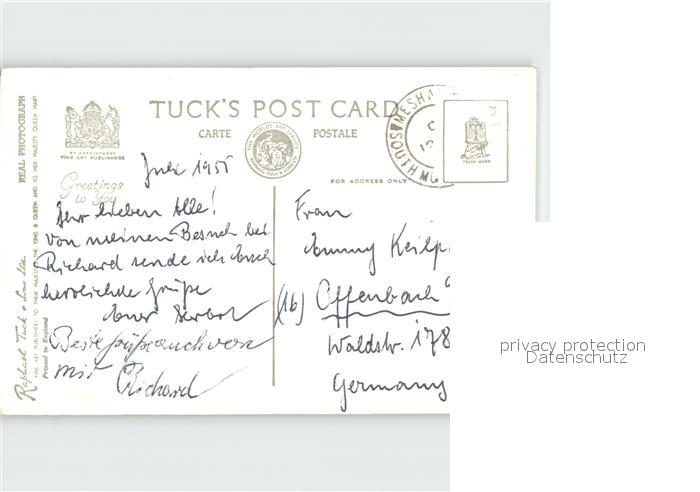 TUCK'S POST CARD
CARTE POSTALE
BY APPOINTMENT
FINE ART PUBLISHERS
THE WORLD'S ART SERVICE
RAPHAEL TUCK & SONS LTD
TRADE MARK
FOR ADDRESS ONLY
Greetings
to You
REAL PHOTOGRAPH
Raphael Tuck & Sons Ltd.
FINE ART PUBLISHERS TO THEIR MAJESTIES THE KING & QUEEN AND TO HER MAJESTY QUEEN MARY
Printed in England
Juli 1955
Ihr lieben Alle!
Von meinem Besuch bei
Richard sende ich Euch
herzlichste Grüße
Euer Herbert
Beste Grüße auch von
mir Richard
Frau
Keilp
(16) Offenbach
Waldstr. 178
Germany
privacy protection
Datenschutz